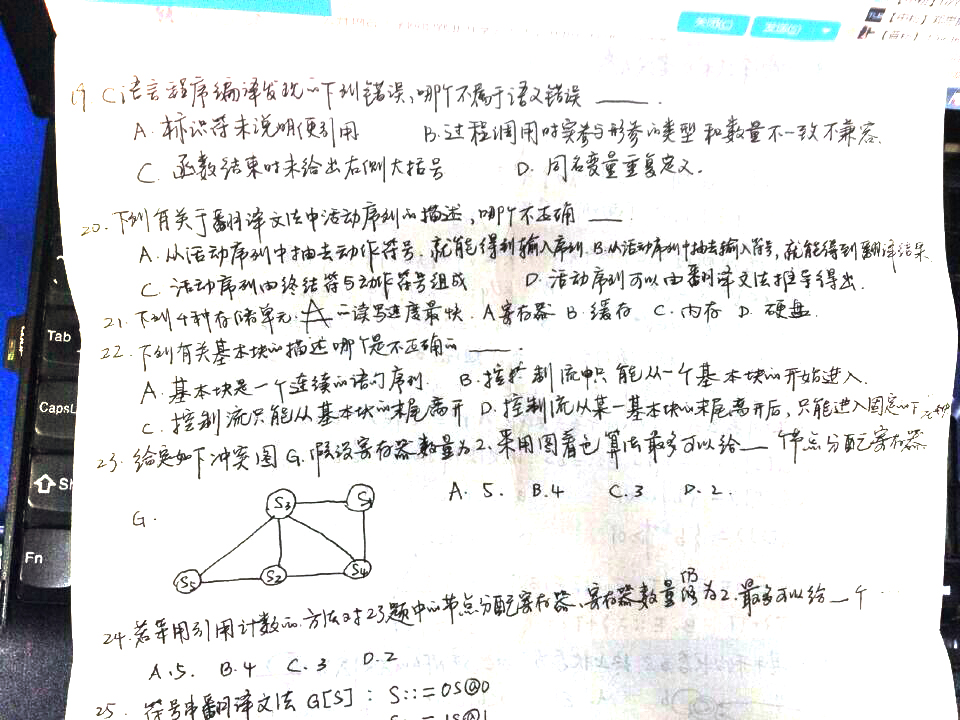 关闭(C)
发送(S)
19 C语言程序编译发现的下列错误,哪个不属于语义错误 ____.
A.标识符未说明便引用 B.过程调用时实参与形参的类型和数量不一致不兼容
C. 函数结束时未给出右侧大括号 D. 同名变量重复定义.
20.下列有关于翻译文法中活动序列的描述,哪个不正确 ___.
A.从活动序列中抽去动作符号,就能得到输入序列. B.从活动序列中抽去输入符号,就能得到翻译结果
C. 活动序列由终结符与动作符号组成 D.活动序列可以由翻译文法推导得出.
21.下列4种存储单元.A的读写速度最快. A寄存器 B.缓存 C.内存 D.硬盘.
22.下列有关基本块的描述哪个是不正确的 ____.
A.基本块是一个连续的语句序列. B.控制流只能从一个基本块的开始进入.
C.控制流只能从基本块的末尾离开 D.控制流从某一基本块的末尾离开后,只能进入固定的下
23.给定如下冲突图G.假设寄存器数量为2.采用图着色算法最多可以给__个节点分配寄存器
A. 5. B.4 C.3 D.2.
G.
S3
S5 S2 S4
24.若采用引用计数的方法对23题中的节点分配寄存器,寄存器数量仍为2.最多可以给_个
A.5. B.4 C.3 D.2
25. 符号串翻译文法 G[S]: S::=0S@0
Tab
CapsL
Sh
Fn